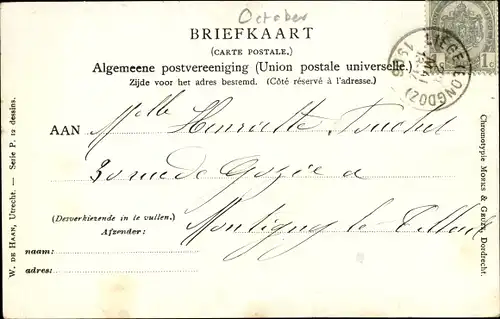 October
BRIEFKAART
(CARTE POSTALE,)
Algemeene postvereeniging (Union postale universelle.)
Zijde voor het adres bestemd. (Côté réservé à l'adresse.)
LIEGE (LONGDOZ)
1C
AAN Mlle Henriette
30 rue de à
(Desverkiezende in te vullen.)
Montigny le Tilleul
Afzender:
naam:
adres:
W. DE HAAN, Utrecht. — Serie P. 12 dessins.
Chromotypie MORKS & GEUZE, Dordrecht.